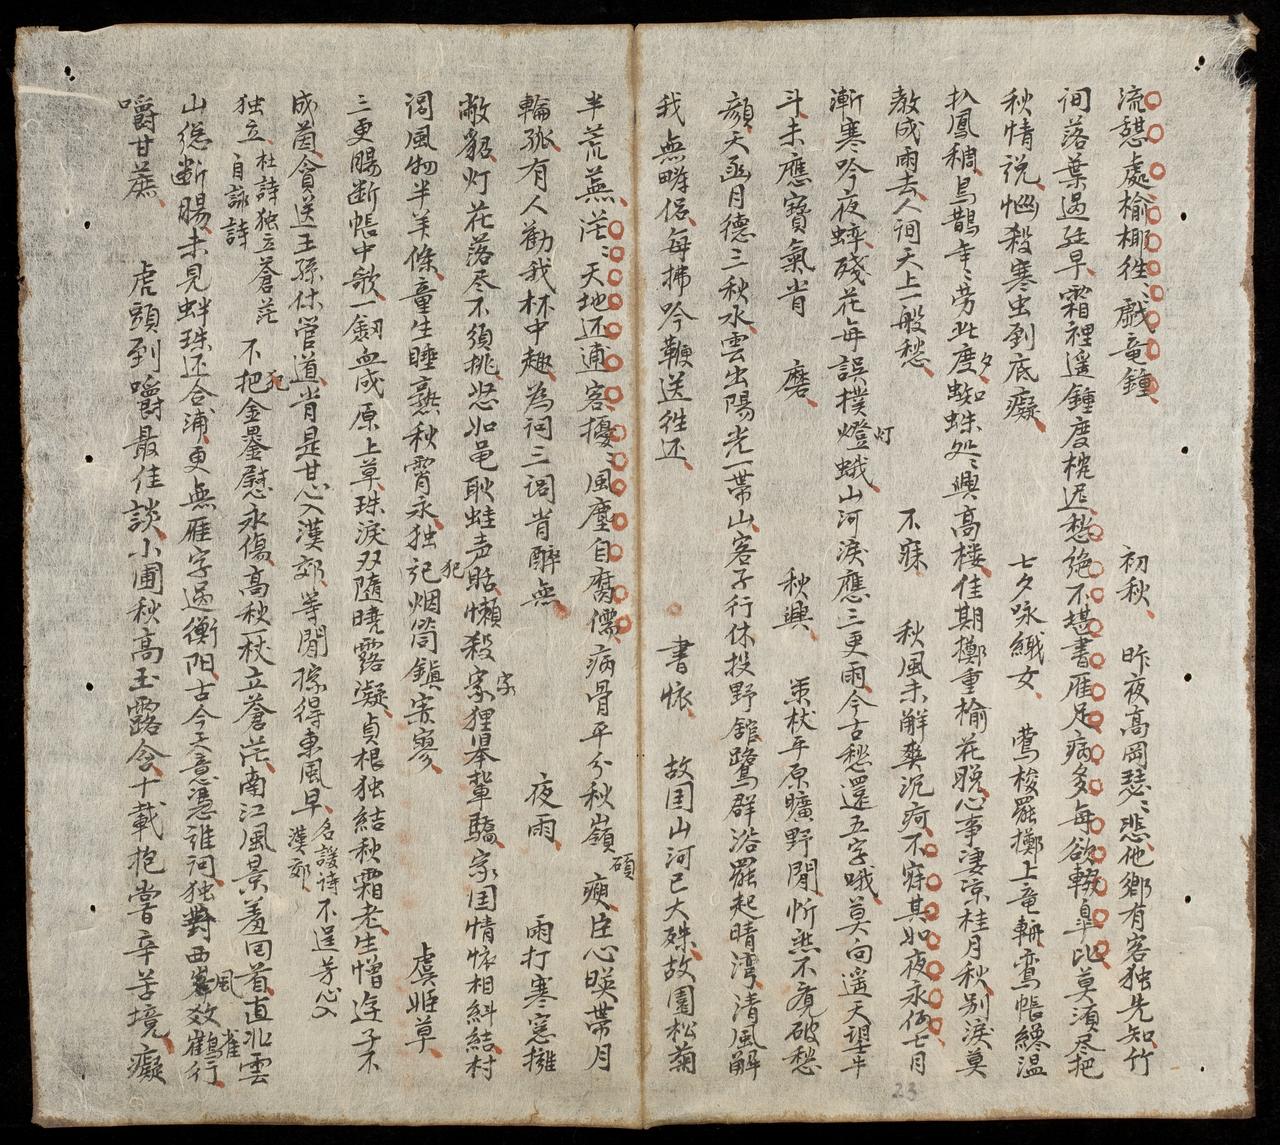 流憇處榆梛徃〻戲竜鍾 初秋 昨夜高岡瑟〻悲他鄉有客独先知竹
间落葉過廷早霜裡遥鍾度梡迟愁绝不堪書雁足病多每欲輟皐比莫須尽把
秋情说惱殺寒虫到底癡 七夕咏織女 鶯梭罷擲上竜軿鸞帳纔温
扒鳳稠烏鵲年〻劳此度蜘蛛处〻興高楼佳期擲重榆花脱心事凄凉桂月秋别淚莫
教成雨去人间天上一般愁 不寐 秋風未解爽沉疴不寐其如夜永何七月
漸寒吟夜蟀殘花每誤撲燈蛾山河淚應三更雨今古愁還五字哦莫向遥天望牛
斗未應寶氣肯 磨 秋興 策杖平原曠野閒忻然不覔破愁
顔天函月德三秋水雲出陽光一帶山客子行休投野舘鷺群浴罷起晴湾清風解
我無畴侣每拂吟鞭送徃还 書懷 故囯山河已大殊故園松菊
半荒蕪茫〻天地还逋客擾〻風塵自腐儒病骨平分秋嶺碩瘐臣心暎带月
輪孤有人勸我杯中趣為问三閭肯醉無 夜雨 雨打寒窓擁
敝貂灯花落尽不須挑悲如黾耿蛙声聒懒殺家狸舉輩驕家囯情懷相糾結村
閭風物半羊條童生睡熟秋霄永独記烟筒鎮寂寥 虞姬草
三更腸断帳中歌一劔血成原上草珠淚双隨曉露凝貞根独結秋霜老生憎遊子不
成茵貪送王孫休管道肯是甘心入漢郊等閒擦得東風早名護诗不逞芳心漢郊
独立杜詩独立蒼茫自詠詩 不把金罍慰永傷高秋一杖立蒼茫南江風景羞回首直北雲
山緫断腸未見蚌珠还合浦更無雁字過衡阳古今天意憑谁问独對西峯效鶴行
嚼甘蔗 虎頭到嚼最佳談小圃秋高玉露含十載抱嘗辛苦境癡
夕
灯
字
犯
犯
風
雀
23